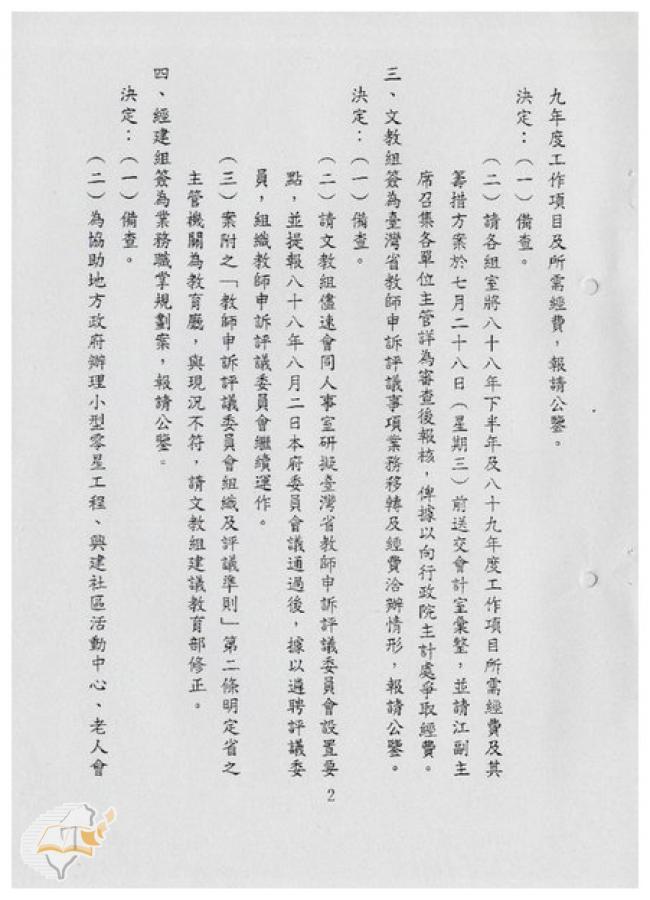 九年度工作項目及所需經費，報請公鑒。
決定：（一）備查。
（二）請各組室將八十八年下半年及八十九年度工作項目所需經費及其
籌措方案於七月二十八日（星期三）前送交會計室彙整，並請江副主
席召集各單位主管詳為審查後報核，俾據以向行政院主計處爭取經費。
三、文教組簽為臺灣省教師申訴評議事項業務移轉及經費洽辦情形，報請公鑒。
決定：（一）備查。
（二）請文教組儘速會同人事室研擬臺灣省教師申訴評議委員會設置要
點，並提報八十八年八月二日本府委員會議通過後，據以遴聘評議委
員，組織教師申訴評議委員會繼續運作。
（三）案附之「教師申訴評議委員會組織及評議準則」第二條明定省之
主管機關為教育廳，與現況不符，請文教組建議教育部修正。
四、經建組簽為業務職掌規劃案，報請公鑒。
決定：（一）備查。
（二）為協助地方政府辦理小型零星工程、興建社區活動中心、老人會
2